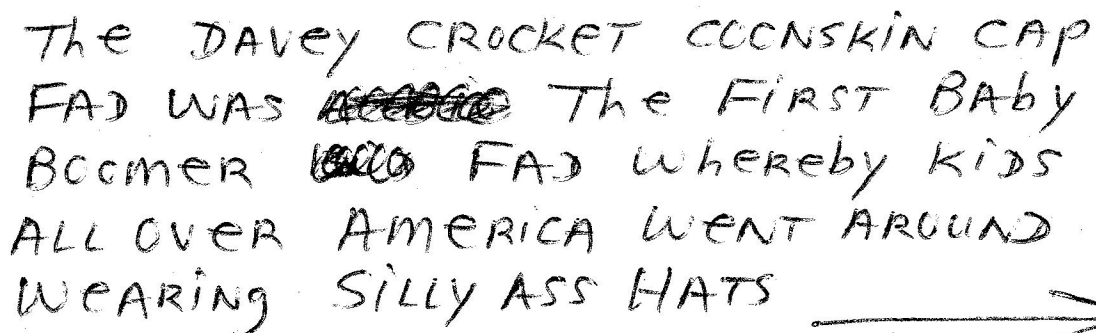 The DAVey CROCKET COONSKiN CAP
FAD WAS The FiRST BAby
BOOMER FAD whereby KiDS
ALL OVER AMERICA WENT AROUND
WEARiNg SiLLY ASS HATS